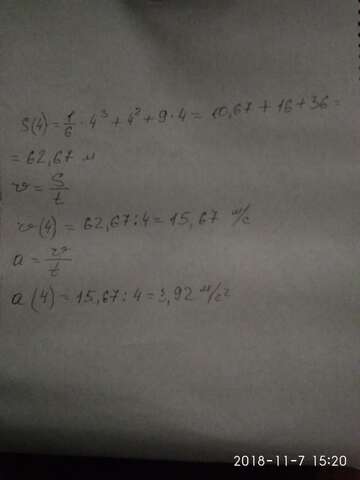 S(4) = 1/6 · 4³ + 4² + 9 · 4 = 10,67 + 16 + 36 =
= 62,67 м
v = S/t
v(4) = 62,67 : 4 = 15,67 м/с
a = v/t
a (4) = 15,67 : 4 = 3,92 м/с²
2018-11-7 15:20